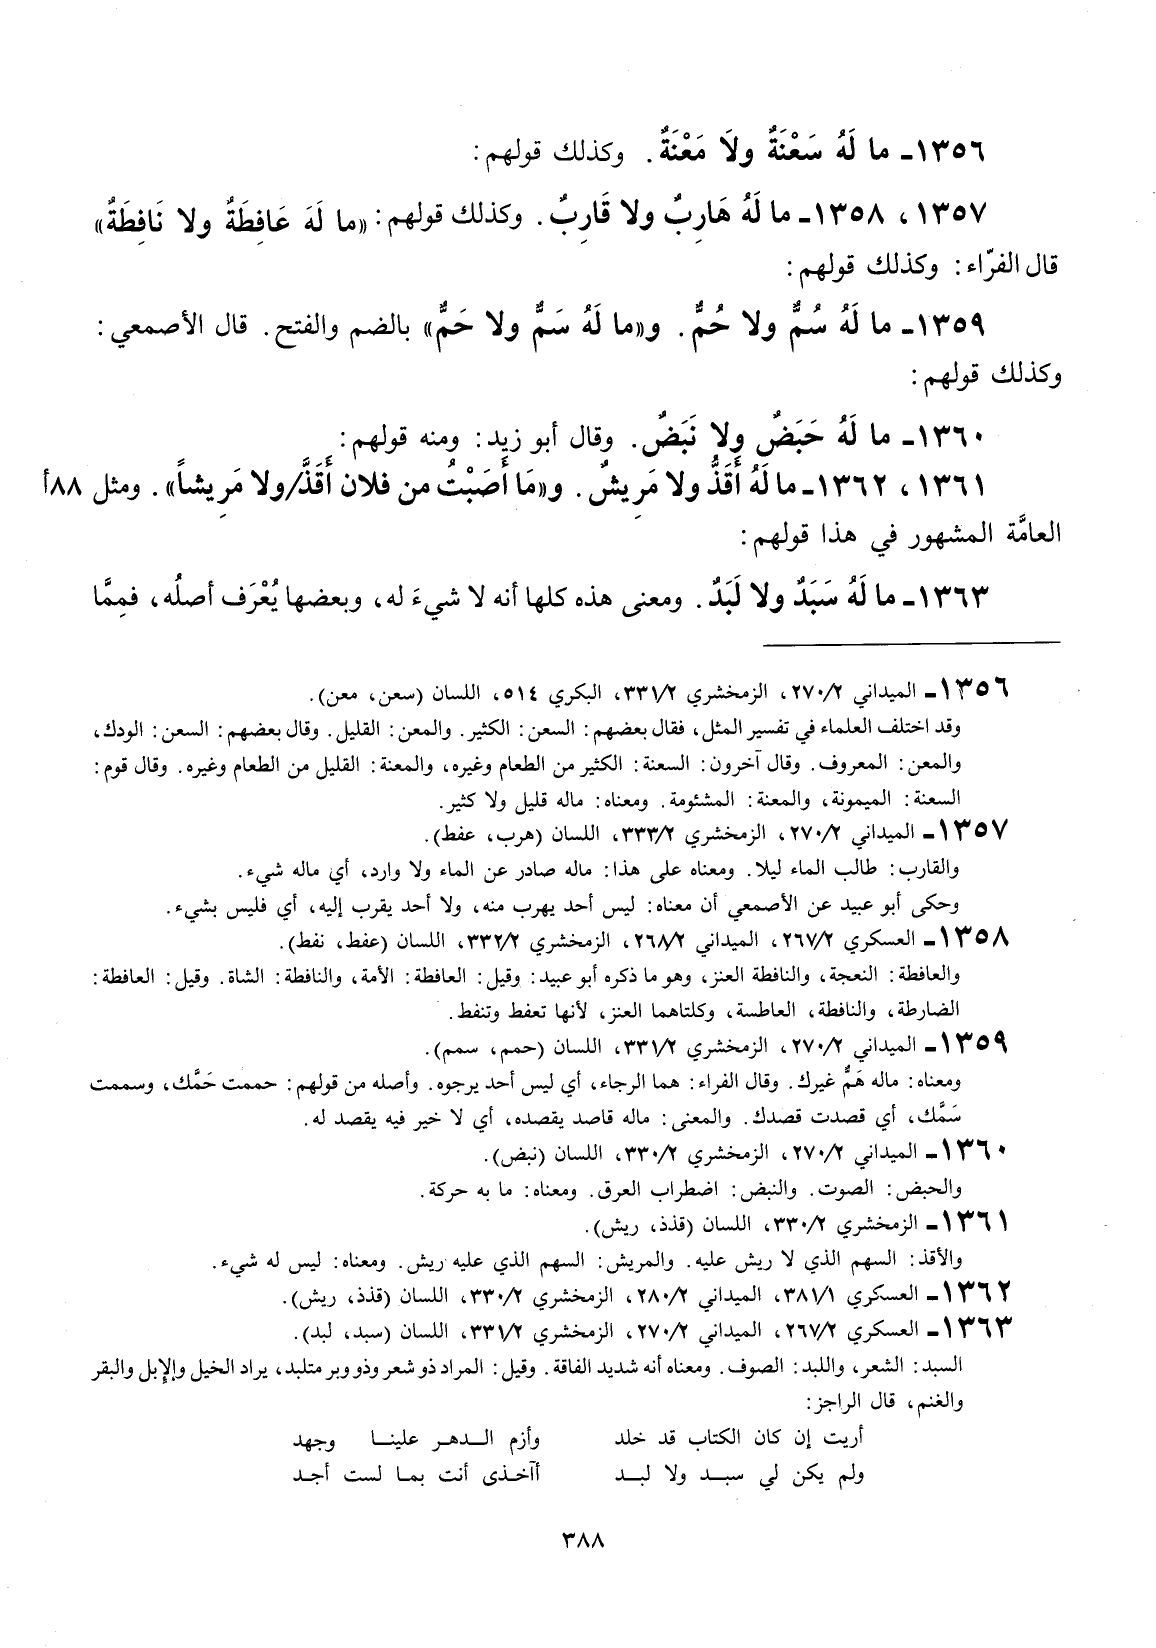 ١٣٥٦ـ ما لَهُ سَعْنَةٌ ولاَ مَعْنَةٌ. وكذلك قولهم:
١٣٥٧، ١٣٥٨ـ ما لَهُ هَارِبٌ ولا قَارِبٌ. وكذلك قولهم: «ما لَهَ عَافِطَةٌ ولا نَافِطَةٌ»
قال الفرّاء: وكذلك قولهم:
١٣٥٩ـ ما لَهُ سُمٌّ ولا حُمٌّ. و«ما لَهُ سَمٌّ ولا حَمٌّ» بالضم والفتح. قال الأصمعي:
وكذلك قولهم:
١٣٦٠ـ ما لَهُ حَبَضٌ ولا نَبَضٌ. وقال أبو زيد: ومنه قولهم:
١٣٦١، ١٣٦٢ـ ما لَهُ أَقَذُّ ولا مَرِيشٌ. و«مَا أَصَبْتُ من فلان أَقَذَّ/ولا مَرِيشاً». ومثل ٨٨أ
العامَّة المشهور في هذا قولهم:
١٣٦٣ـ ما لَهُ سَبَدٌ ولا لَبَدٌ. ومعنى هذه كلها أنه لا شيءَ له، وبعضها يُعْرَف أصلُه، فمِمَّا
١٣٥٦ـ الميداني ٢٧٠/٢، الزمخشري ٣٣١/٢، البكري ٥١٤، اللسان (سعن، معن).
وقد اختلف العلماء في تفسير المثل، فقال بعضهم: السعن: الكثير. والمعن: القليل. وقال بعضهم: السعن: الودك،
والمعن: المعروف. وقال آخرون: السعنة: الكثير من الطعام وغيره، والمعنة: القليل من الطعام وغيره. وقال قوم:
السعنة: الميمونة، والمعنة: المشئومة. ومعناه: ماله قليل ولا كثير.
١٣٥٧ـ الميداني ٢٧٠/٢، الزمخشري ٣٣٣/٢، اللسان (هرب، عفط).
والقارب: طالب الماء ليلا. ومعناه على هذا: ماله صادر عن الماء ولا وارد، أي ماله شيء.
وحكى أبو عبيد عن الأصمعي أن معناه: ليس أحد يهرب منه، ولا أحد يقرب إليه، أي فليس بشيء.
١٣٥٨ـ العسكري ٢٦٧/٢، الميداني ٢٦٨/٢، الزمخشري ٣٣٢/٢، اللسان (عفط، نفط).
والعافطة: النعجة، والنافطة العنز، وهو ما ذكره أبو عبيد: وقيل: العافطة: الأمة، والنافطة: الشاة. وقيل: العافطة:
الضارطة، والنافطة، العاطسة، وكلتاهما العنز، لأنها تعفط وتنفط.
١٣٥٩ـ الميداني ٢٧٠/٢، الزمخشري ٣٣١/٢، اللسان (حمم، سمم).
ومعناه: ماله هَمٌّ غيرك. وقال الفراء: هما الرجاء، أي ليس أحد يرجوه. وأصله من قولهم: حممت حَمَّك، وسممت
سَمَّك، أي قصدت قصدك. والمعنى: ماله قاصد يقصده، أي لا خير فيه يقصد له.
١٣٦٠ـ الميداني ٢٧٠/٢، الزمخشري ٣٣٠/٢، اللسان (نبض).
والحبض: الصوت. والنبض: اضطراب العرق. ومعناه: ما به حركة.
١٣٦١ـ الزمخشري ٣٣٠/٢، اللسان (قذذ، ريش).
والأقذ: السهم الذي لا ريش عليه. والمريش: السهم الذي عليه ريش. ومعناه: ليس له شيء.
١٣٦٢ـ العسكري ٣٨١/١، الميداني ٢٨٠/٢، الزمخشري ٣٣٠/٢، اللسان (قذذ، ريش).
١٣٦٣ـ العسكري ٢٦٧/٢، الميداني ٢٧٠/٢، الزمخشري ٣٣١/٢، اللسان (سبد، لبد).
السبد: الشعر، واللبد: الصوف. ومعناه أنه شديد الفاقة. وقيل: المراد ذو شعر وذو وبر متلبد، يراد الخيل والإبل والبقر
والغنم، قال الراجز:
أريت إن كان الكتاب قد خلد وأزم الـدهـر علينـا وجهد
ولم يكن لي سبـد ولا لبـد أآخـذى أنت بمـا لست أجـد
٣٨٨